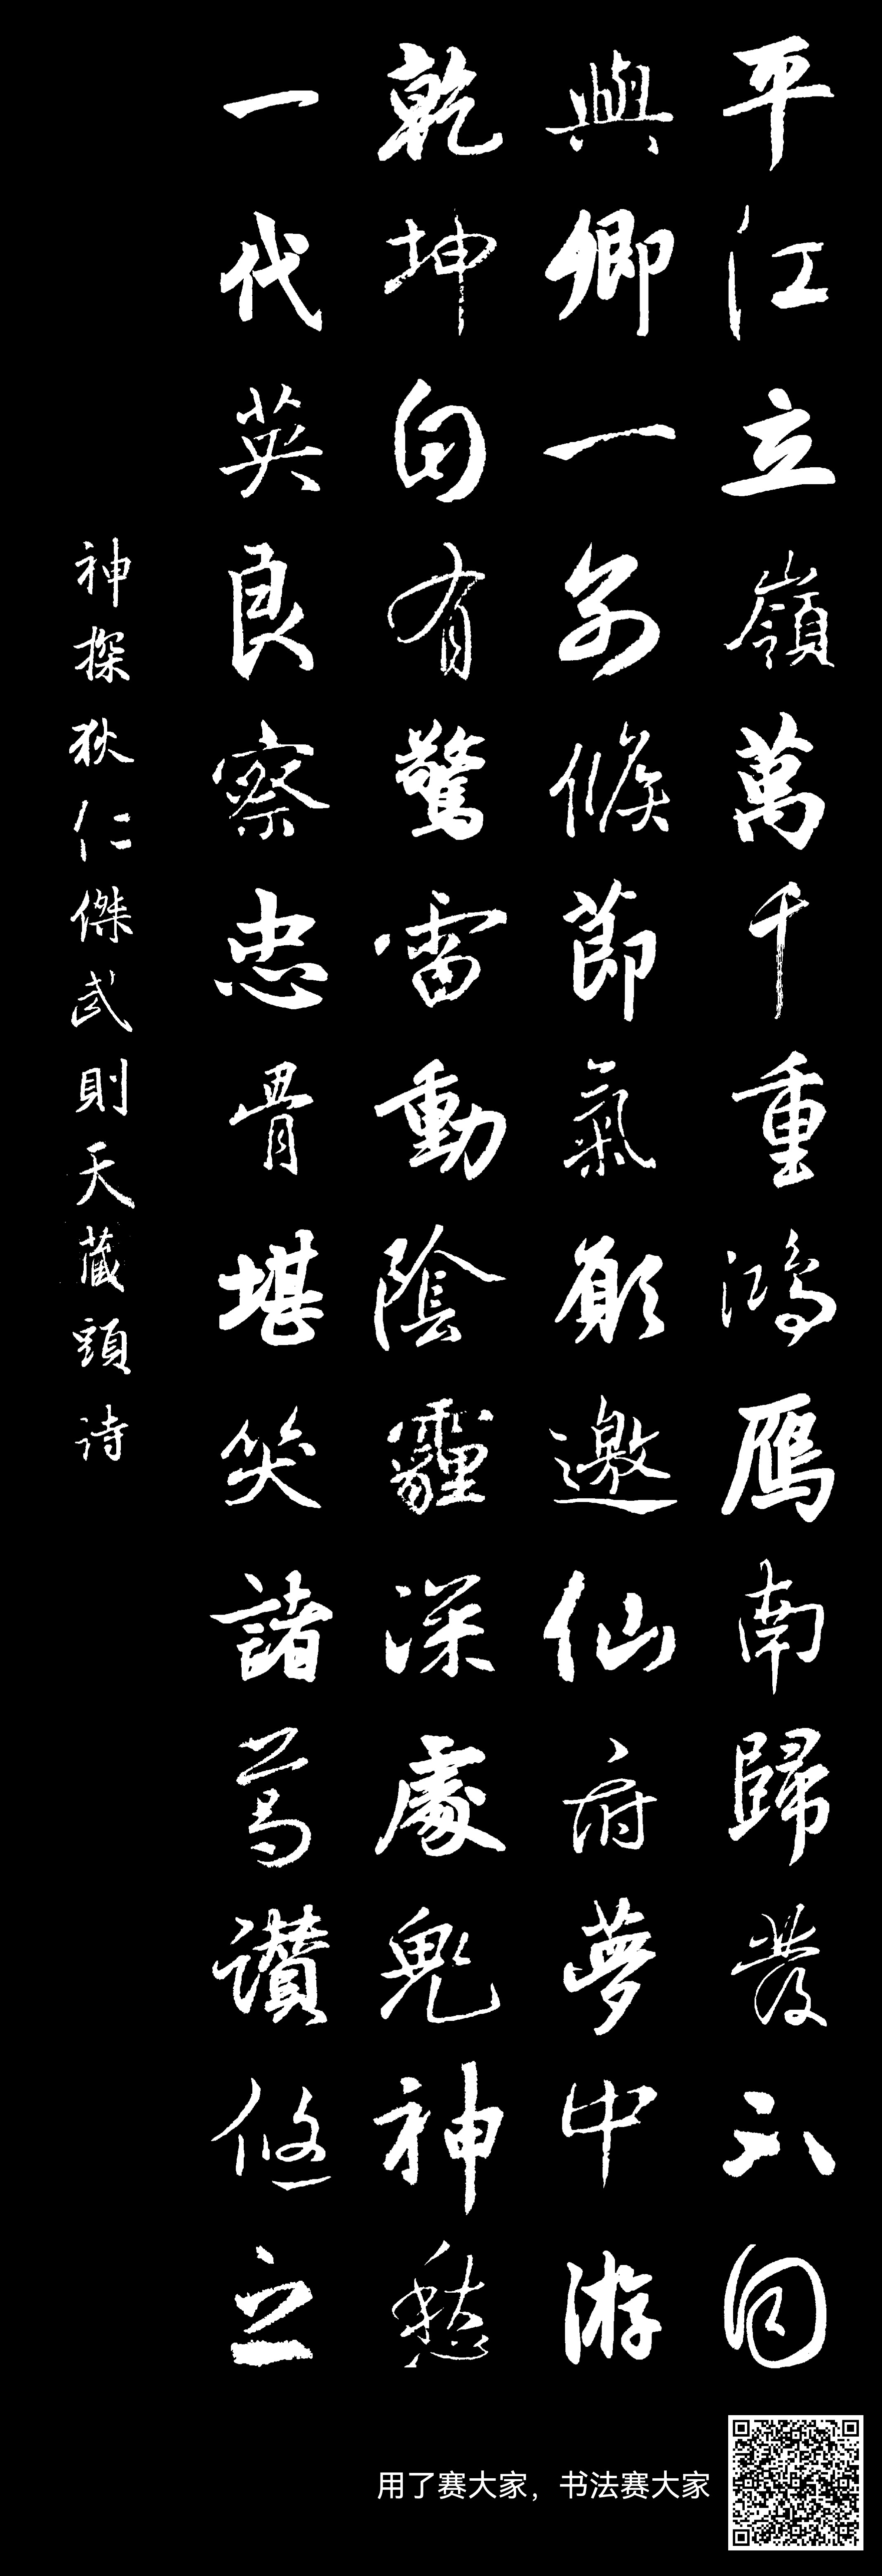 平江立嶺萬千重鴻雁南歸發不回
與卿一候節氣願邀仙府夢中游
乾坤自有驚雷動陰霾深處鬼神愁
一代英良察忠骨堪笑諸葛讚悠之
神探狄仁傑武則天藏頭诗
用了赛大家，书法赛大家